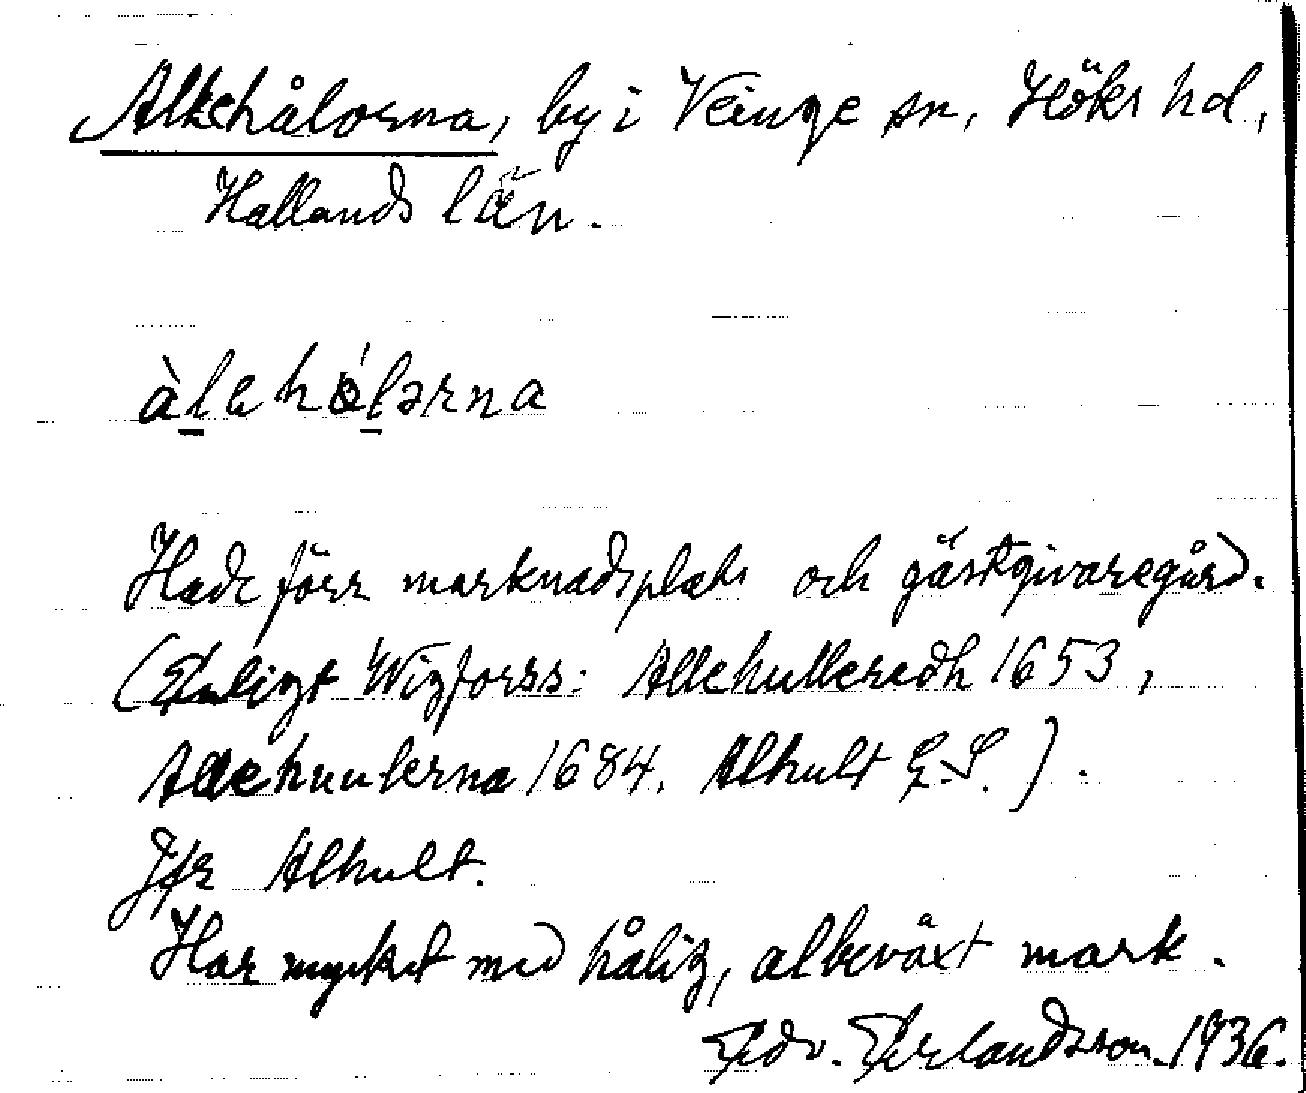 Allehålorna, by i Veinge sn, Höks hd,
Hallands län.
àlehǻlərna
Hade förr marknadsplats och gästgivaregård.
(Enligt Wigforss: Allehulleredh 1653,
Allehuulerna 1684. Alhult G.S.).
Jfr Alhult.
Har mycket med hålig, albeväxt mark.
Edv. Erlandsson. 1936.